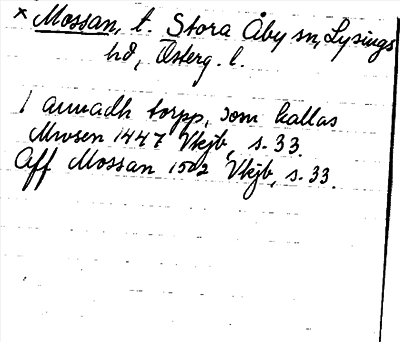 × Mossan, t. Stora Åby sn, Lysings
hd, Österg. l.
I annadh torpp, som kallas
Mwsen 1447 Vkjb, s. 33.
Aff Mossan 1502 Vkjb, s. 33.